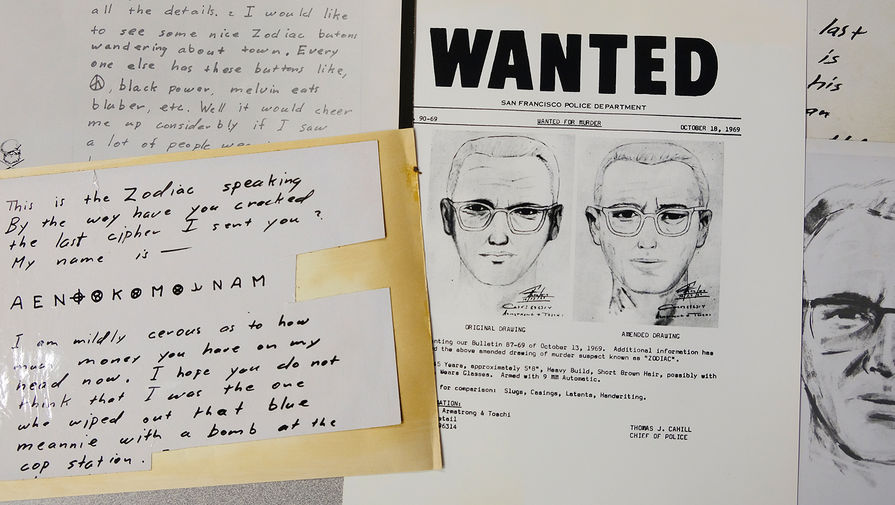 all the details. 2 I would like
to see some nice Zodiac butons
wandering about town. Every
one else has these buttons like,
☮, black power, melvin eats
bluber, etc. Well it would cheer
me up considerbly if I saw
a lot of people
This is the Zodiac speaking
By the way have you cracked
the last cipher I sent you?
My name is —
A E N ⌖ ⊗ K ⊗ M ⊗ ⅃ N A M
I am mildly cerous as to how
much money you have on my
head now. I hope you do not
think that I was the one
who wiped out that blue
meannie with a bomb at the
cop station.
WANTED
SAN FRANCISCO POLICE DEPARTMENT
90-69 WANTED FOR MURDER OCTOBER 18, 1969
ORIGINAL DRAWING AMENDED DRAWING
nting our Bulletin 87-69 of October 13, 1969. Additional information has
d the above amended drawing of murder suspect known as "ZODIAC".
5 Years, approximately 5'8", Heavy Build, Short Brown Hair, possibly with
Wears Glasses. Armed with 9 MM Automatic.
for comparison: Slugs, Casings, Latents, Handwriting.
ATION:
Armstrong & Toschi
etail
96314
THOMAS J. CAHILL
CHIEF OF POLICE
last
is
his